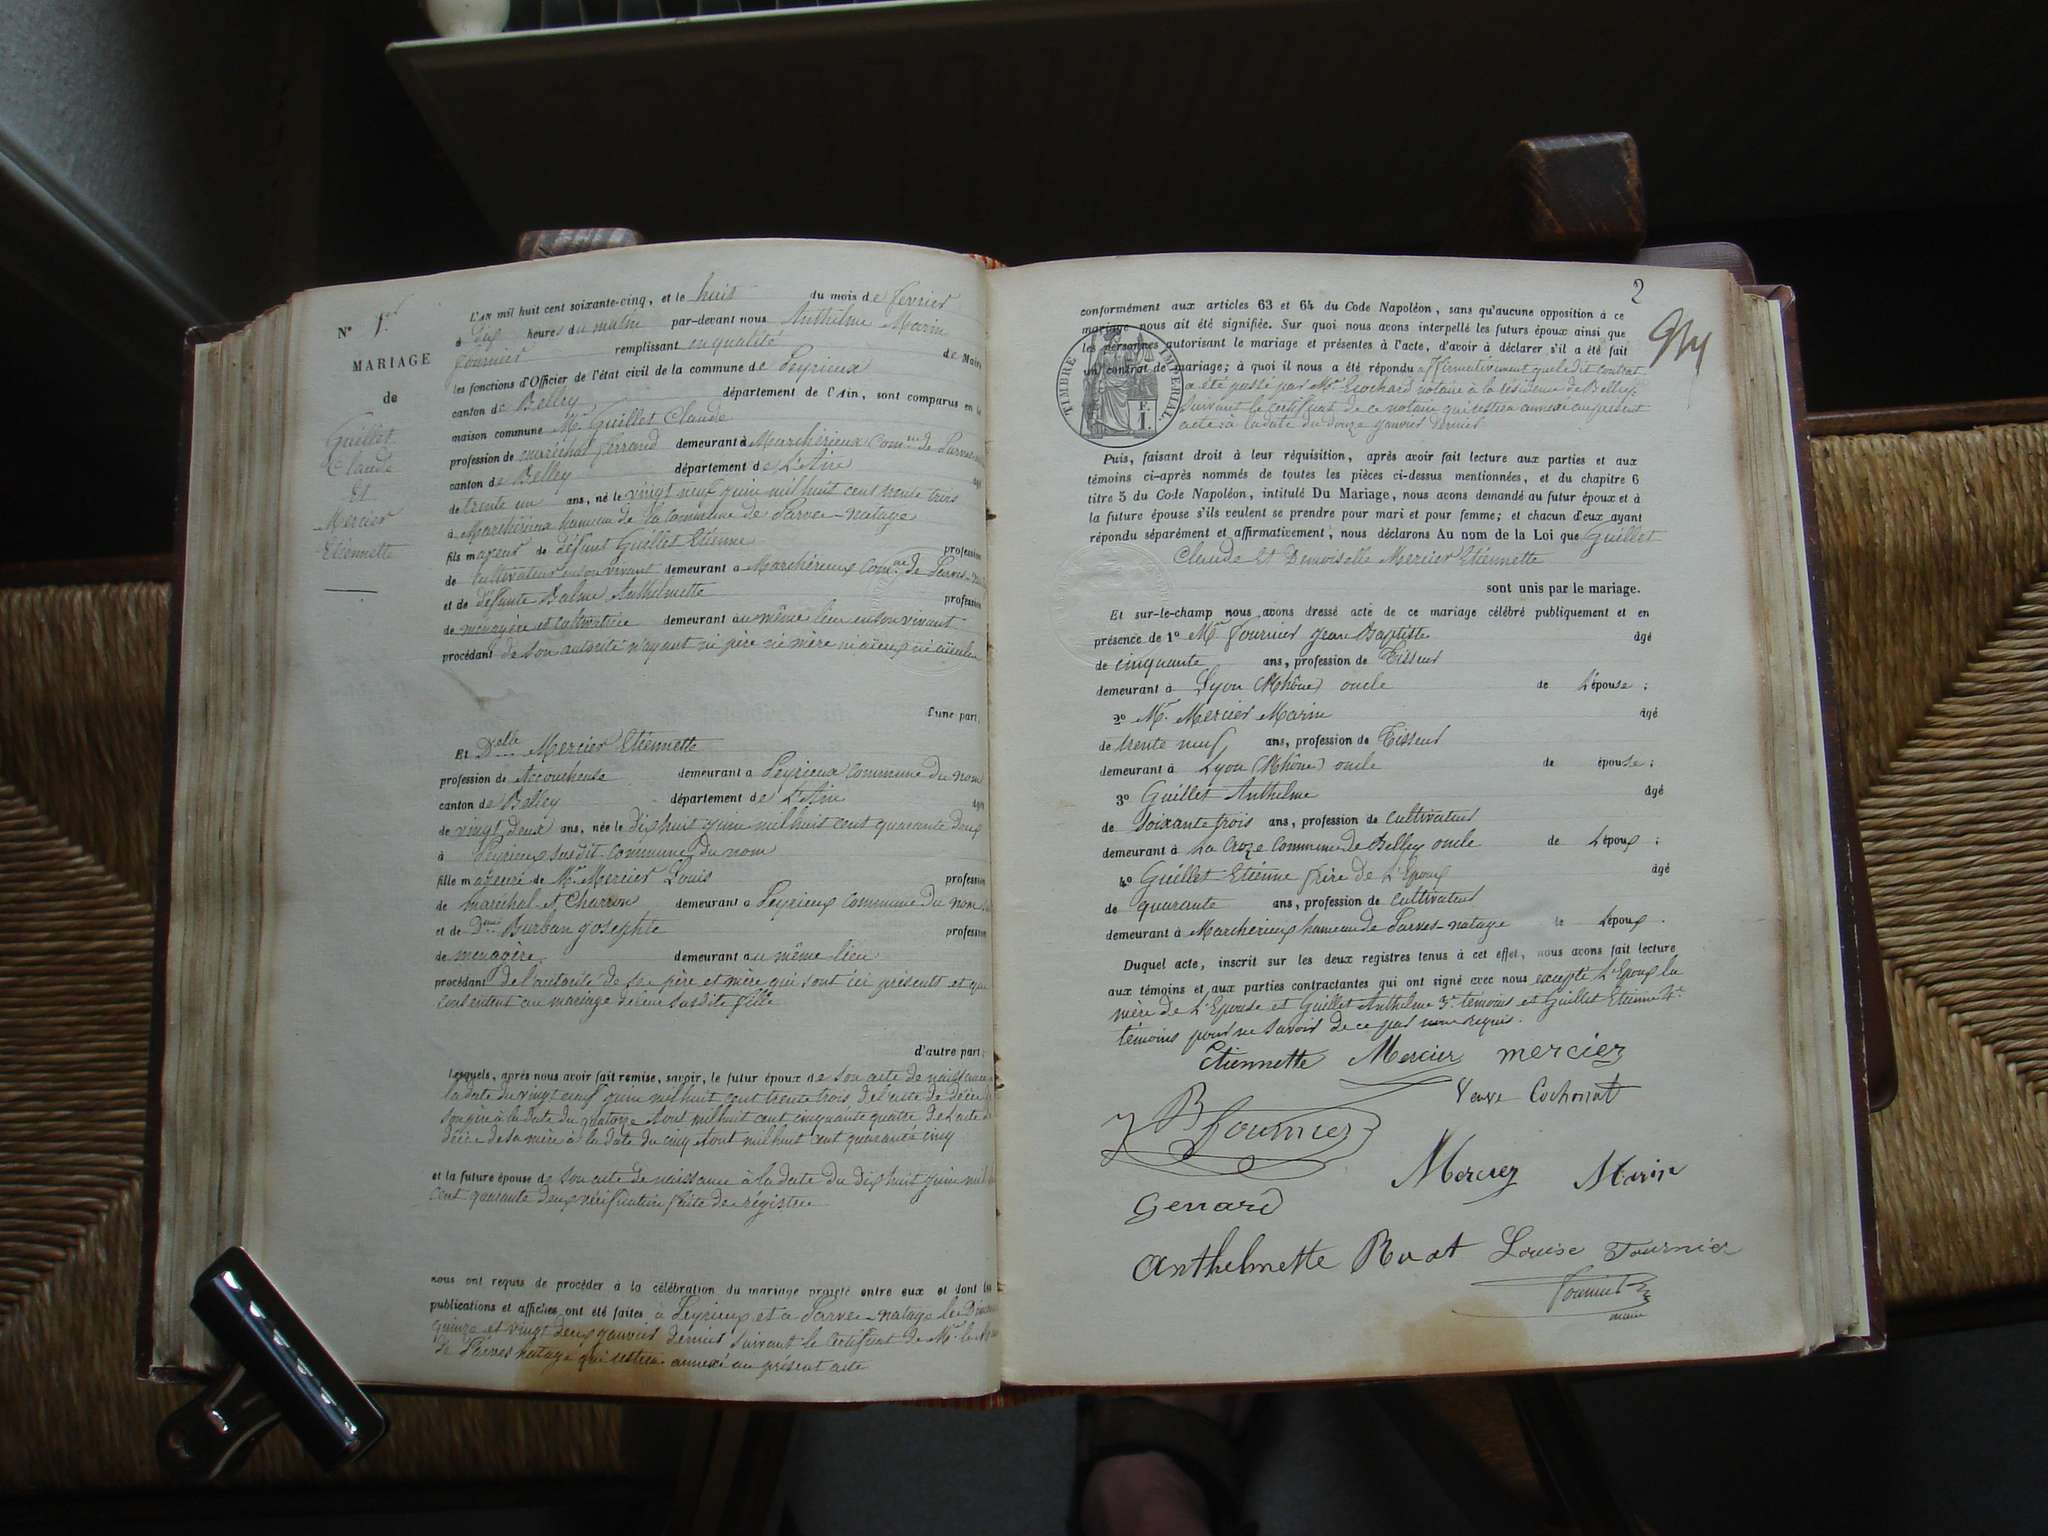 N° 1er
MARIAGE
de
Guillet
Claude
Et
Mercier
Etiennette
L'an mil huit cent soixante-cinq, et le huit du mois de février
à dix heures du matin par-devant nous Anthelme Marin
fournier remplissant en qualité de Maire
les fonctions d'Officier de l'état civil de la commune de Peyrieux
canton de Belley département de l'Ain, sont comparus en la
maison commune Mr Guillet Claude
profession de maréchal ferrand demeurant à Marchérieux Comne de Parves
canton de Belley département de L'Ain âgé
de trente un ans, né le vingt neuf juin mil huit cent trente trois
à Marchérieux hameau de la Commune de Parves-natage
fils majeur de défunt Guillet Etienne profession
de Cultivateur en son vivant demeurant à Marchérieux Comne de Parves
et de défunte Balme Anthelmette profession
de menagère et cultivatrice demeurant au même lieu en son vivant
procédant de son autorité n'ayant ni père ni mère ni aïeux ni aïeules
d'une part,
Et Delle Mercier Etiennette
profession de Accoucheuse demeurant à Peyrieux commune du nom
canton de Belley département de L'Ain âgée
de vingt deux ans, née le dix huit juin mil huit cent quarante deux
à Peyrieux susdit commune du nom
fille majeure de Mr Mercier Louis profession
de maréchal et Charron demeurant à Peyrieux commune du nom
et de Dme Burban Josephte profession
de menagère demeurant au même lieu
procédant de l'autorité de ses père et mère qui sont ici présents et qui
consentent au mariage de leur susdite fille
d'autre part;
Lesquels, après nous avoir fait remise, savoir, le futur époux de son acte de naissance
la date du vingt neuf juin mil huit cent trente trois de l'acte de décès de
son père à la date du quatorze Aout mil huit cent cinquante quatre de l'acte de
décès de sa mère à la date du cinq Aout mil huit cent quarante cinq
et la future épouse de son acte de naissance à la date du dix huit juin mil
cent quarante deux vérification faite de régistre
nous ont requis de procéder à la célébration du mariage projeté entre eux et dont les
publications et affiches ont été faites à Peyrieux et à Parves-natage les Dimanches
quinze et vingt deux janvier dernier suivant le certificat de Mr le Maire
de Parves natage qui restera annexé au présent acte
2
conformément aux articles 63 et 64 du Code Napoléon, sans qu'aucune opposition à ce
mariage nous ait été signifiée. Sur quoi nous avons interpellé les futurs époux ainsi que
les personnes autorisant le mariage et présentes à l'acte, d'avoir à déclarer s'il a été fait
un contrat de mariage; à quoi il nous a été répondu affirmativement que le dit contrat
a été passé par Me Trochard notaire à la résidence de Belley.
Suivant le certificat de ce notaire qui restera annexé au présent
acte à la date du douze janvier dernier
TIMBRE IMPERIAL
F.
1.
Puis, faisant droit à leur réquisition, après avoir fait lecture aux parties et aux
témoins ci-après nommés de toutes les pièces ci-dessus mentionnées, et du chapitre 6
titre 5 du Code Napoléon, intitulé Du Mariage, nous avons demandé au futur époux et à
la future épouse s'ils veulent se prendre pour mari et pour femme; et chacun d'eux ayant
répondu séparément et affirmativement, nous déclarons Au nom de la Loi que Guillet
Claude Et Demoiselle Mercier Etiennette
sont unis par le mariage.
Et sur-le-champ nous avons dressé acte de ce mariage célébré publiquement et en
présence de 1° Mr Fournier Jean Baptiste âgé
de cinquante ans, profession de Tisseur
demeurant à Lyon (Rhône) oncle de L'épouse;
2° Mr Mercier Marin âgé
de trente neuf ans, profession de Tisseur
demeurant à Lyon (Rhône) oncle de épouse;
3° Guillet Anthelme âgé
de soixante trois ans, profession de cultivateur
demeurant à La Croze Commune de Belley oncle de L'époux;
4° Guillet Etienne frère de L'Epoux âgé
de quarante ans, profession de cultivateur
demeurant à Marchérieux hameau de Parves-natage de L'époux.
Duquel acte, inscrit sur les deux registres tenus à cet effet, nous avons fait lecture
aux témoins et aux parties contractantes qui ont signé avec nous excepté L'Epoux la
mère de L'Epouse et Guillet Anthelme 3e témoins et Guillet Etienne 4e
témoins pour ne savoir de ce par nous requis.
Etiennette Mercier mercier
Veuve Cochonat
JB fournier
Mercier Marin
Genard
Anthelmette Ruat Louise Fournier
fournier
maire